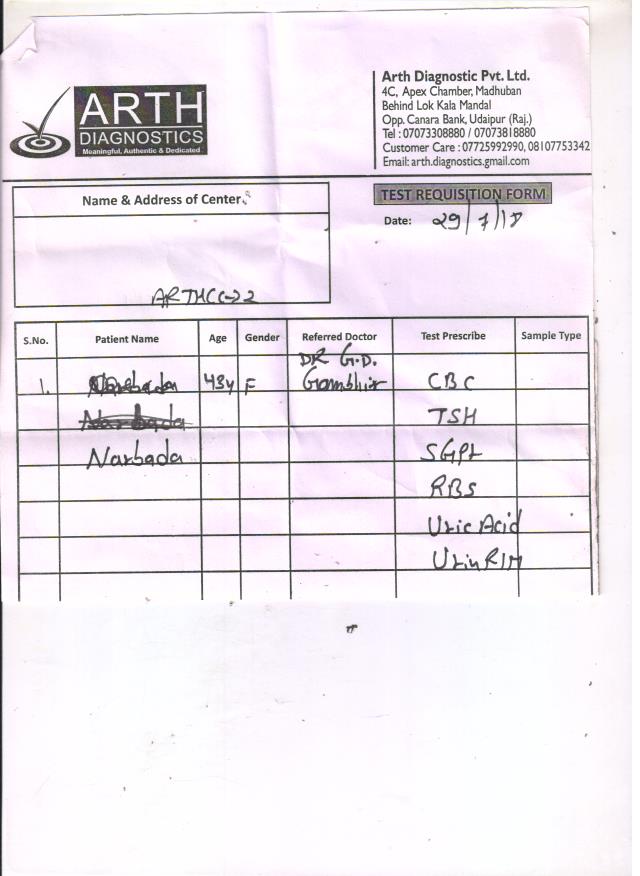 ARTH
DIAGNOSTICS
Meaningful, Authentic & Dedicated
Arth Diagnostic Pvt. Ltd.
4C, Apex Chamber, Madhuban
Behind Lok Kala Mandal
Opp. Canara Bank, Udaipur (Raj.)
Tel : 07073308880 / 07073818880
Customer Care : 07725992990, 08107753342
Email: arth.diagnostics.gmail.com
Name & Address of Center
TEST REQUISITION FORM
Date: 29/7/18
ARTHCC-22
S.No. Patient Name Age Gender Referred Doctor Test Prescribe Sample Type
DR G.D.
1. Narbada 43y F Gambhir CBC
Narbada TSH
Narbada SGPt
RBS
Uric Acid
Urin R/M